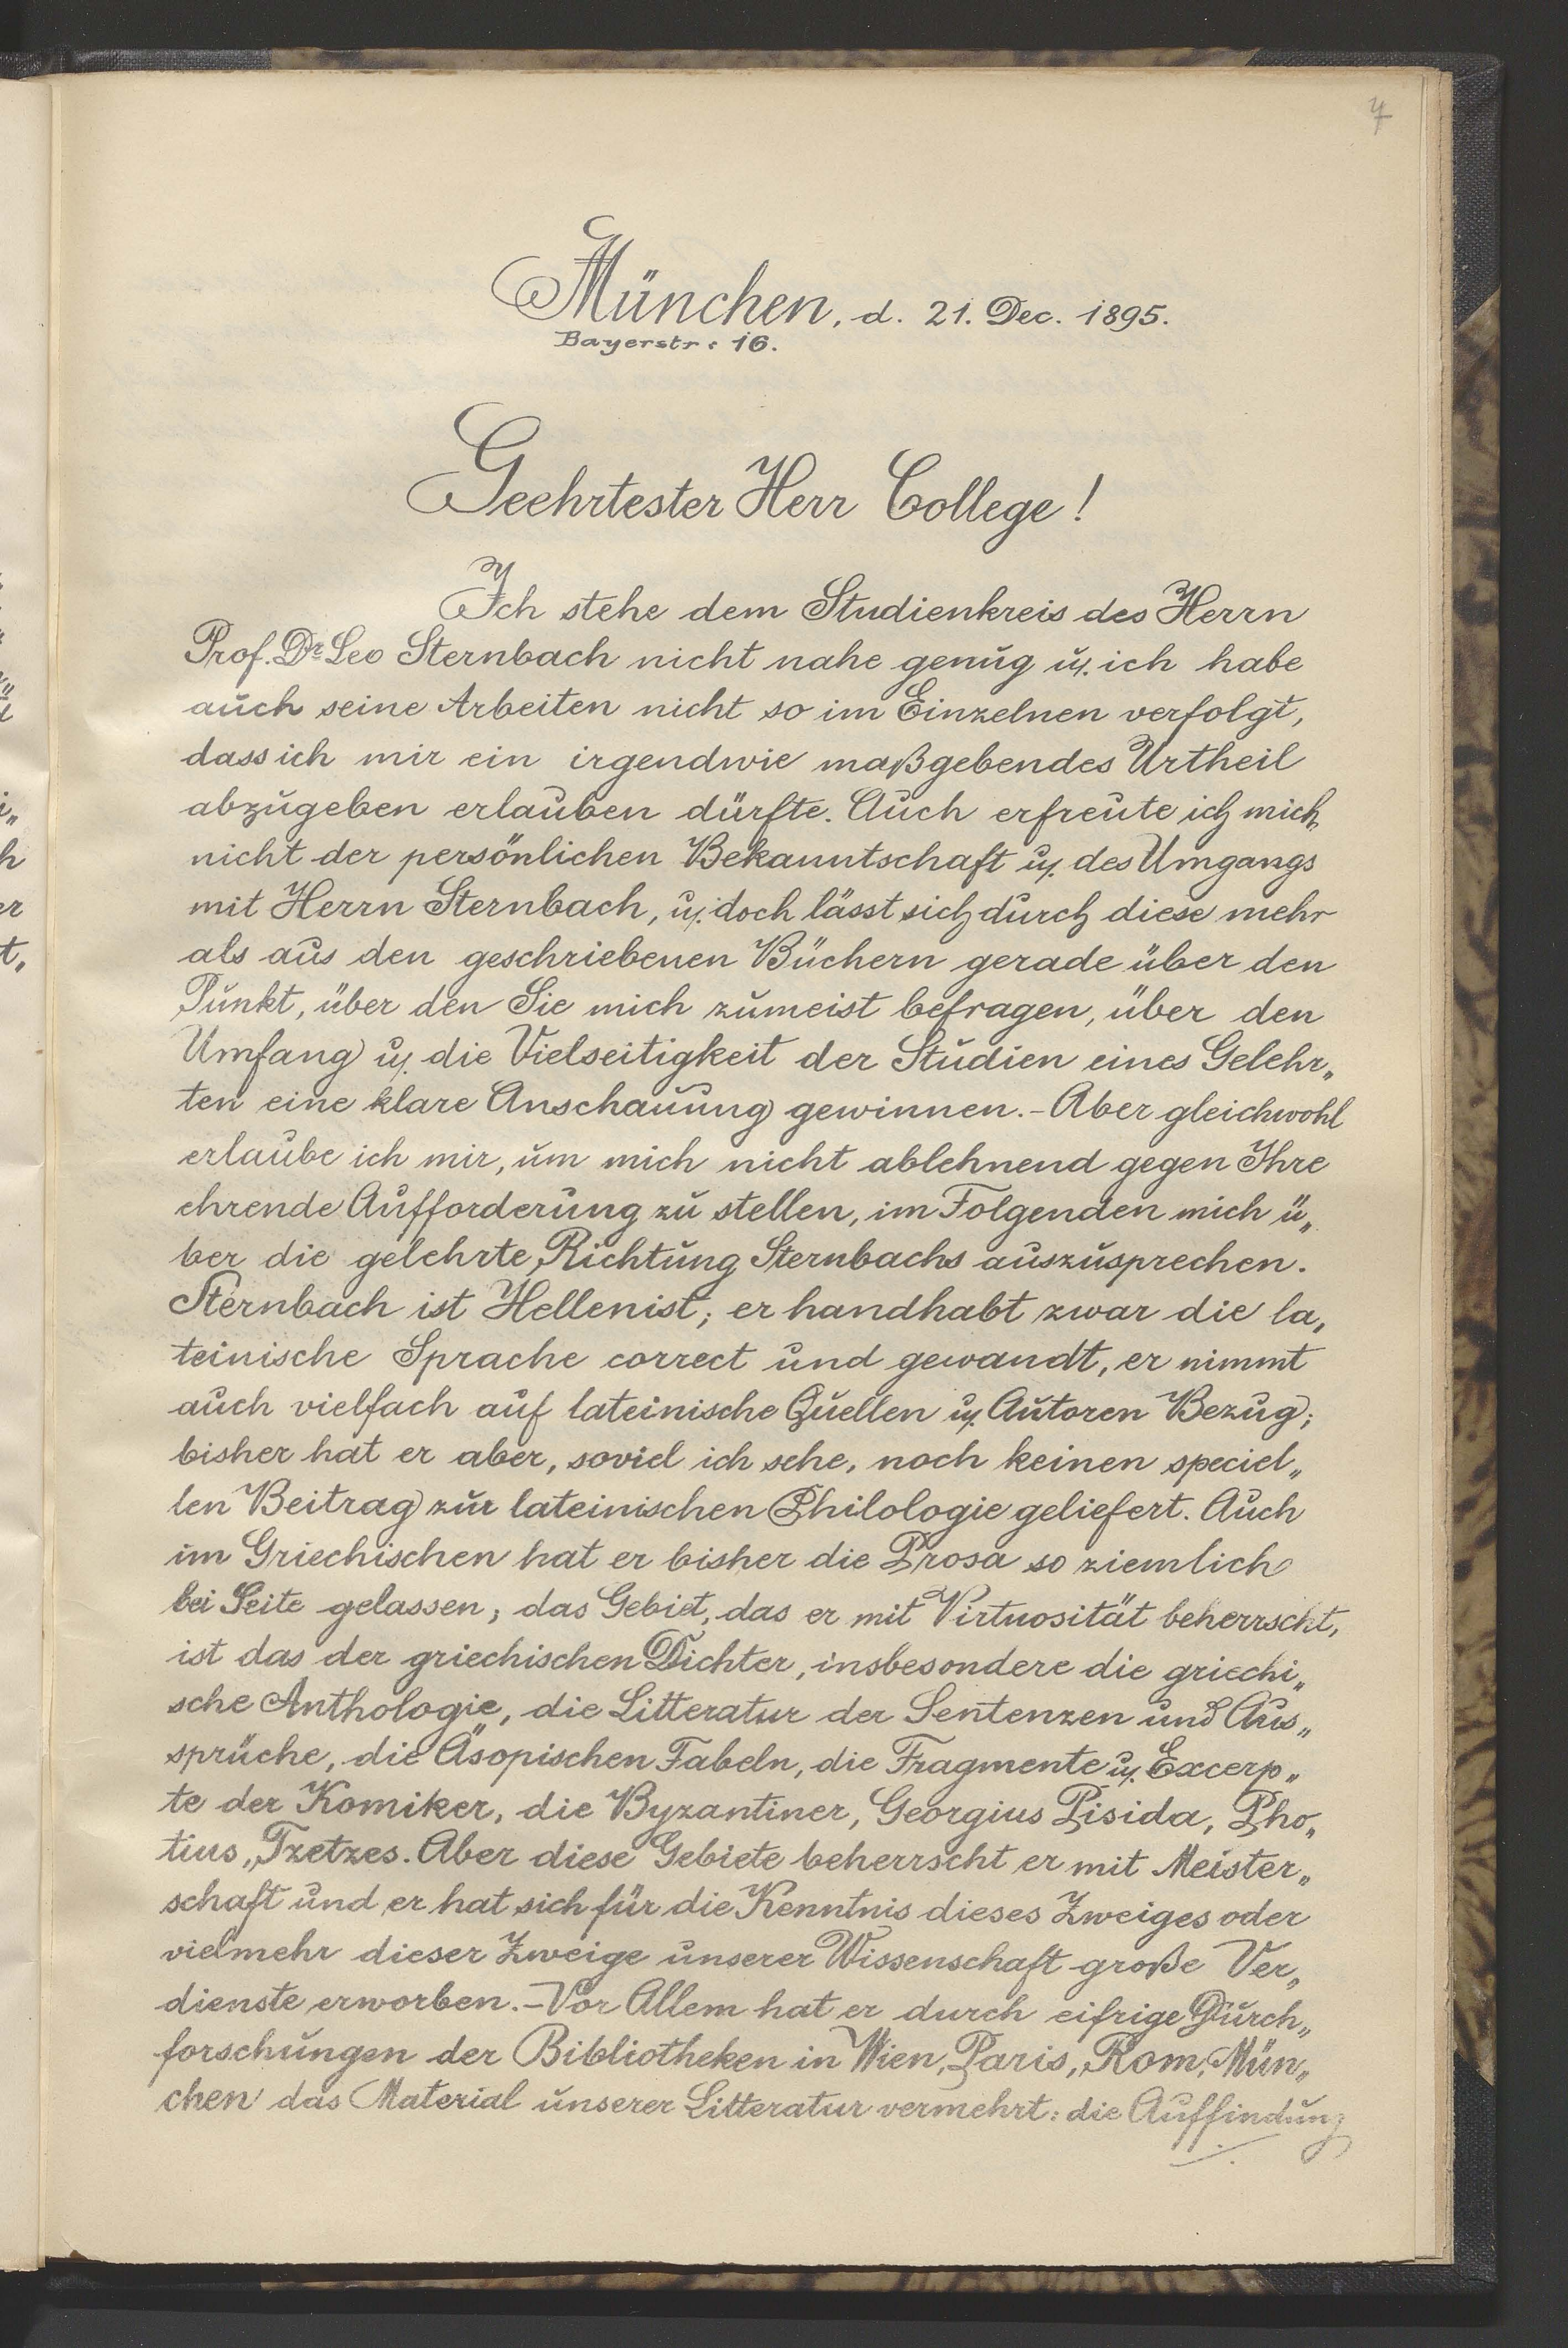 4
München, d. 21. Dec. 1895.
Bayerstr. 16.
Geehrtester Herr College!
Ich stehe dem Studienkreis des Herrn
Prof. Dr Leo Sternbach nicht nahe genug u. ich habe
auch seine Arbeiten nicht so im Einzelnen verfolgt,
dass ich mir ein irgendwie maßgebendes Urtheil
abzugeben erlauben dürfte. Auch erfreute ich mich
nicht der persönlichen Bekanntschaft u. des Umgangs
mit Herrn Sternbach, u. doch lässt sich durch diese mehr
als aus den geschriebenen Büchern gerade über den
Punkt, über den Sie mich zumeist befragen, über den
Umfang u. die Vielseitigkeit der Studien eines Gelehr„
ten eine klare Anschauung gewinnen. – Aber gleichwohl
erlaube ich mir, um mich nicht ablehnend gegen Ihre
ehrende Aufforderung zu stellen, im Folgenden mich ü„
ber die gelehrte Richtung Sternbachs auszusprechen.
Sternbach ist Hellenist; er handhabt zwar die la„
teinische Sprache correct und gewandt, er nimmt
auch vielfach auf lateinische Quellen u. Autoren Bezug;
bisher hat er aber, soviel ich sehe, noch keinen speciel„
len Beitrag zur lateinischen Philologie geliefert. Auch
im Griechischen hat er bisher die Prosa so ziemlich
bei Seite gelassen; das Gebiet, das er mit Virtuosität beherrscht,
ist das der griechischen Dichter, insbesondere die griechi„
sche Anthologie, die Litteratur der Sentenzen und Aus„
sprüche, die Äsopischen Fabeln, die Fragmente u. Excerp„
te der Komiker, die Byzantiner, Georgius Pisida, Pho„
tius, Tzetzes. Aber diese Gebiete beherrscht er mit Meister„
schaft und er hat sich für die Kenntnis dieses Zweiges oder
vielmehr dieser Zweige unserer Wissenschaft große Ver„
dienste erworben. – Vor Allem hat er durch eifrige Durch„
forschungen der Bibliotheken in Wien, Paris, Rom, Mün„
chen das Material unserer Litteratur vermehrt: die Auffindung